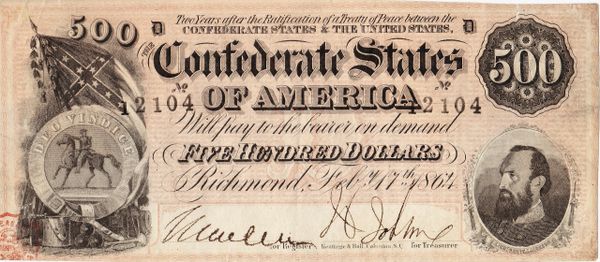 Two Years after the Ratification of a Treaty of Peace between the
CONFEDERATE STATES & THE UNITED STATES,
500 D D
THESE
Confederate States
500
No No
12104 12104
OF AMERICA
Will pay to the bearer on demand
DEO VINDICE
FIVE HUNDRED DOLLARS
Richmond, Feby. 17th, 1864
for Register Keatinge & Ball, Columbia, S.C. for Treasurer